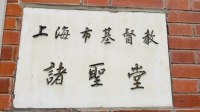 上海市基督教
諸聖堂